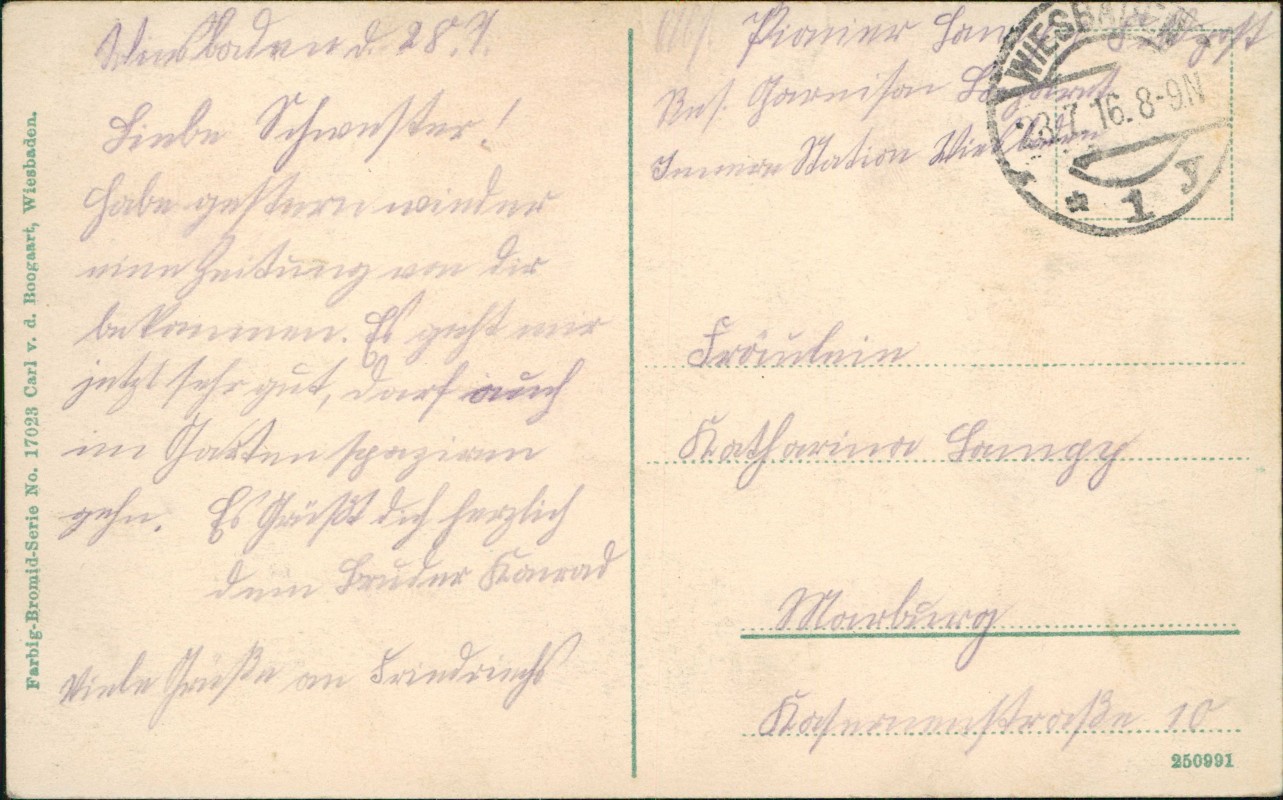 Farbig-Bromid-Serie No. 17023 Carl v. d. Boogaart, Wiesbaden.
Wiesbaden d. 28.7.
Liebe Schwester!
Habe gestern wieder
eine Zeitung von dir
bekommen. Es geht mir
jetzt sehr gut, darf auch
im Garten spazieren
gehn. Es Grüßt dich herzlich
dein Bruder Konrad
Viele Grüße an Friedrichs
Pionier Feldpost
Res. Garnison Lazaret
Innere Station Wiesbaden
WIESBADEN
7.16.8-9N
* 1 y
Fräulein
Katharina Lampp
Marburg
Kasernenstraße 10
250991